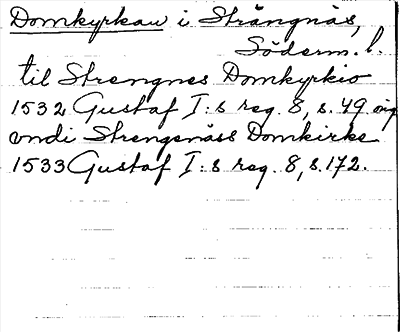 Domkyrkan i Strängnäs,
Söderm. l.
til Strengnes Domkyrkio
1532 Gustaf I:s reg. 8, s. 49 orig
vndi Strengenäss Domkirke
1533 Gustaf I:s reg. 8, s. 172.